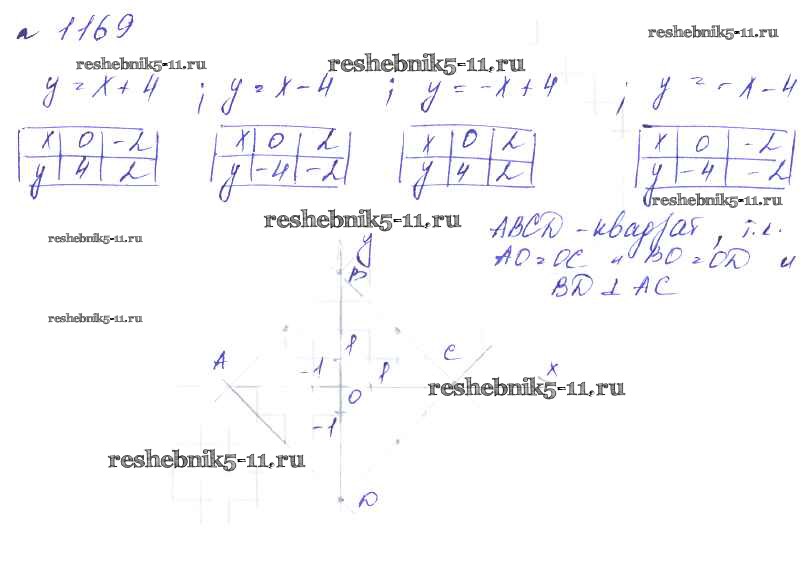 № 1169
reshebnik5-11.ru
reshebnik5-11.ru
reshebnik5-11.ru
y = x + 4 ; y = x - 4 ; y = -x + 4 ; y = -x - 4
x 0 -2
y 4 2
x 0 2
y -4 -2
x 0 2
y 4 2
x 0 -2
y -4 -2
reshebnik5-11.ru
reshebnik5-11.ru
ABCD - квадрат, т.к.
AO = OC и BO = OD и
BD ⊥ AC
reshebnik5-11.ru
y
B
reshebnik5-11.ru
1
A
-1
1
C
x
O
reshebnik5-11.ru
-1
reshebnik5-11.ru
D